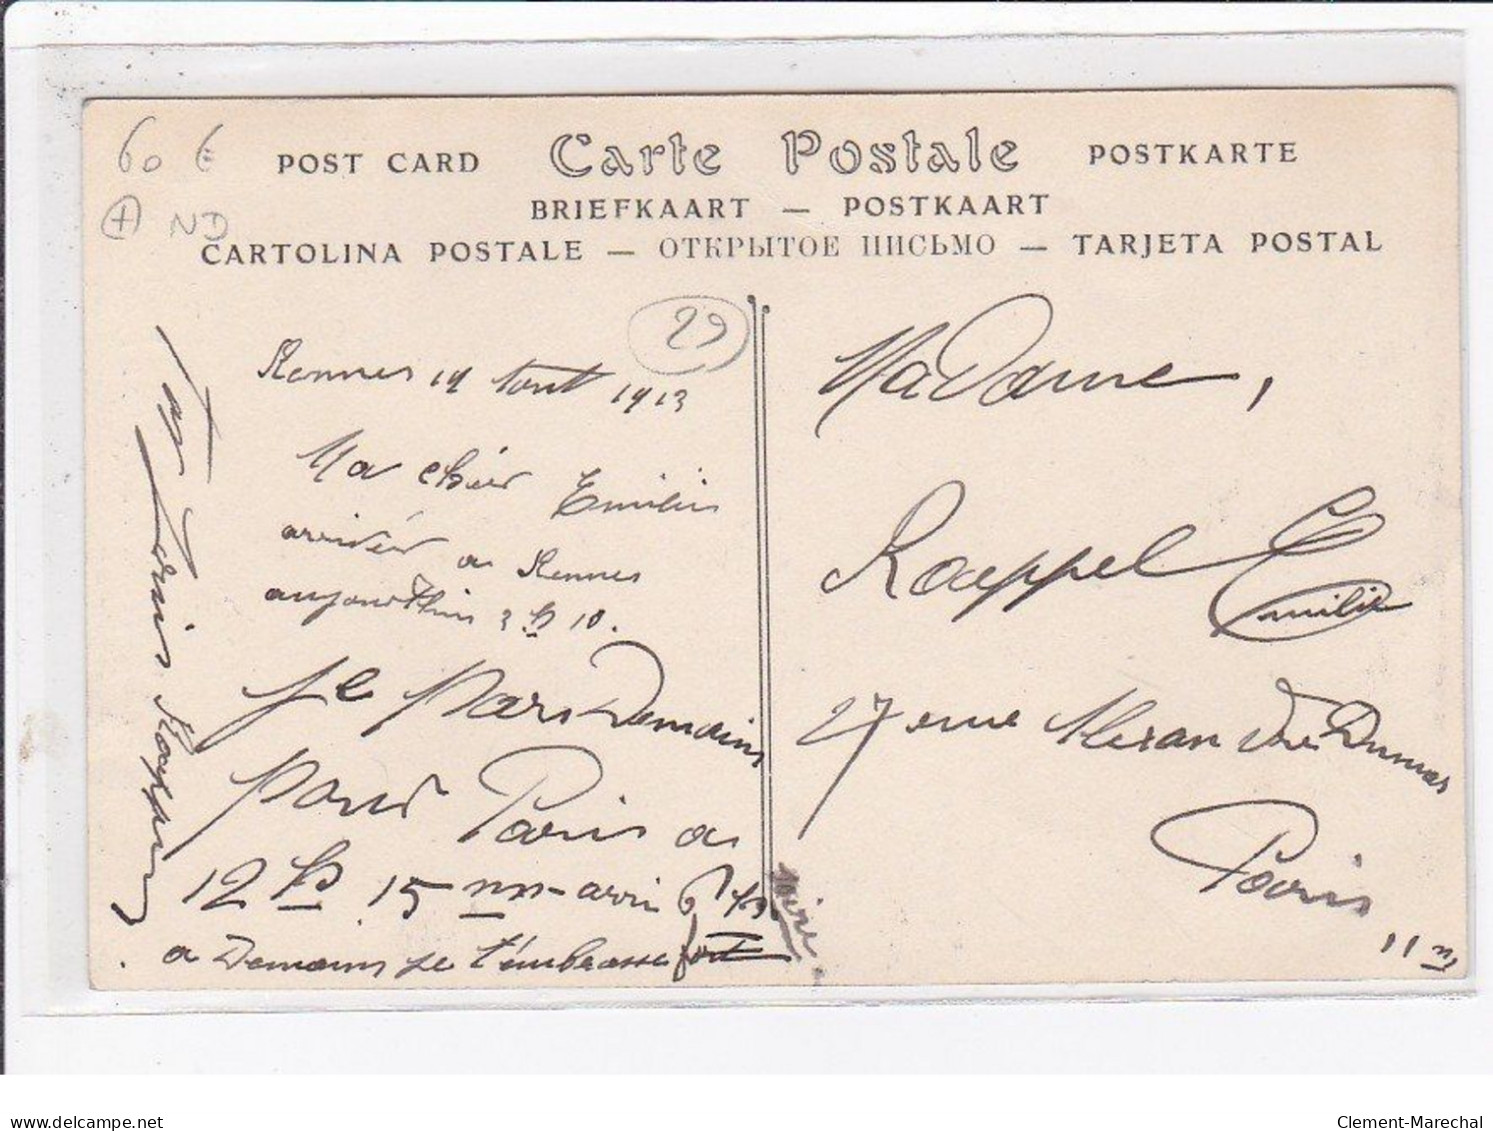 60 €
POST CARD Carte Postale POSTKARTE
+ ND
BRIEFKAART — POSTKAART
CARTOLINA POSTALE — ОТКРЫТОЕ ПИСЬМО — TARJETA POSTAL
29
Rennes 19 1913
Ma chér Emilie
arrivér a Rennes
aujourdhui 3 h 10.
Je Pars Demain
Pour Paris a
12 h 15 m arri 6
a Demain je t'embrasse fort
Ton
Madame,
Roeppel Emilie
27 rue Alexandre Dumas
Paris
11
delcampe.net
Clement-Marechal